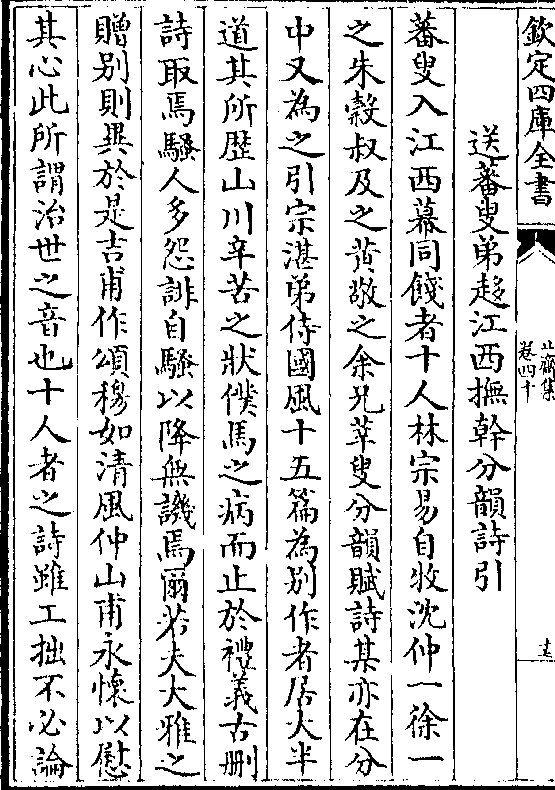 欽定四庫全書
止齋集
卷四十
送蕃叟弟趍江西撫幹分韻詩引
蕃叟入江西幕同餞者十人林宗易自牧沈仲一徐一
之朱穀叔及之黄敬之余兄萃叟分韻賦詩某亦在分
中又為之引宗湛弟侍國風十五篇為别作者居大半
道其所歴山川辛苦之狀僕馬之病而止於禮義古删
詩取焉騷人多怨誹自騷以降無譏焉爾若夫大雅之
贈别則異於是吉甫作頌穆如清風仲山甫永懷以慰
其心此所謂治世之音也十人者之詩雖工拙不必論